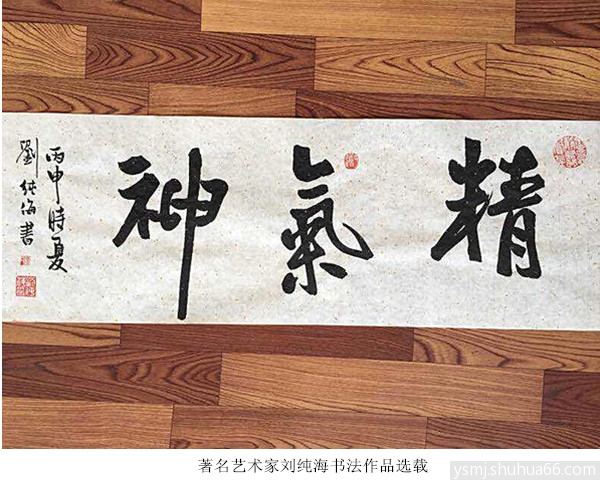 精氣神
丙申時夏
劉純海書
著名艺术家刘纯海书法作品选载
ysmj.shuhua66.com